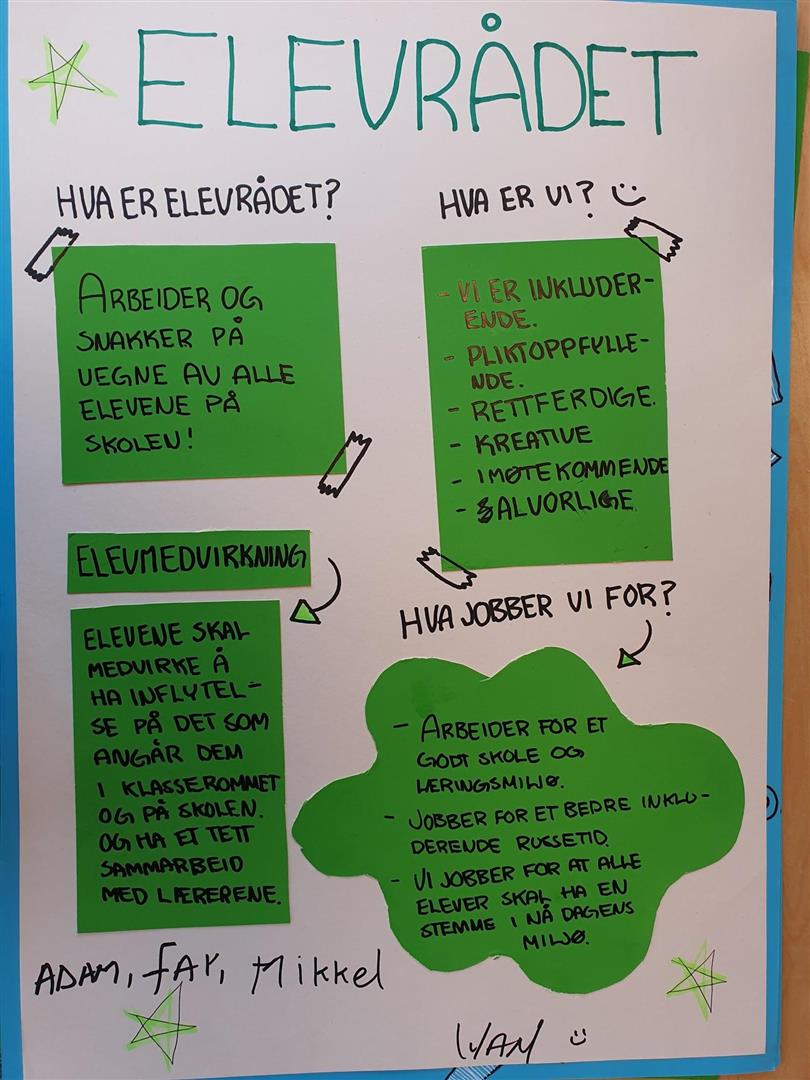 ELEVRÅDET
HVA ER ELEVRÅDET?
ARBEIDER OG
SNAKKER PÅ
VEGNE AV ALLE
ELEVENE PÅ
SKOLEN!
HVA ER VI?
- VI ER INKLUDER-
ENDE.
- PLIKTOPPFYLLE-
NDE.
- RETTFERDIGE.
- KREATIVE
- IMØTEKOMMENDE
- ALVORLIGE
ELEVMEDVIRKNING
ELEVENE SKAL
MEDVIRKE Å
HA INFLYTEL-
SE PÅ DET SOM
ANGÅR DEM
I KLASSEROMMET
OG PÅ SKOLEN.
OG HA ET TETT
SAMMARBEID
MED LÆRERENE.
HVA JOBBER VI FOR?
- ARBEIDER FOR ET
GODT SKOLE OG
LÆRINGSMILJØ.
- JOBBER FOR ET BEDRE INKLU-
DERENDE RUSSETID.
- VI JOBBER FOR AT ALLE
ELEVER SKAL HA EN
STEMME I NÅ DAGENS
MILJØ.
ADAM, Mikkel